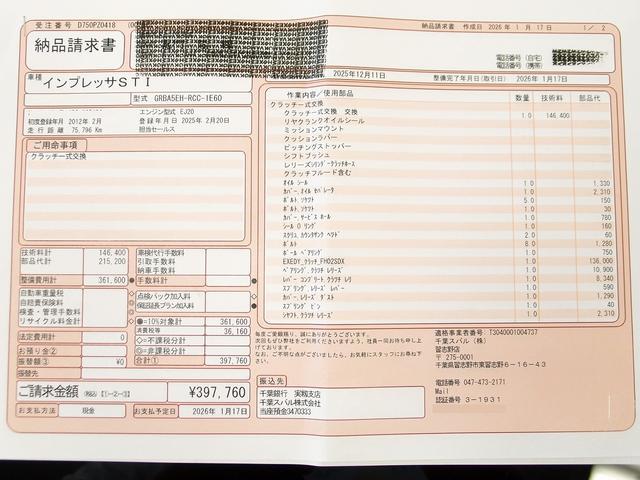 受注番号 D750PZ0418
納品請求書 作成日 2026年 1月17日 1/ 2
納品請求書
電話番号(自宅)
電話番号(携帯)
2025年12月11日
整備完了年月日(取引日) 2026年 1月17日
車種 インプレッサSTI
型式 GRBA5EH-RCC-IE60
エンジン型式 EJ20
初度登録年月 2012年 2月 登録年月日 2025年 2月20日
走行距離 75,796 Km 担当セールス
ご用命事項
クラッチ一式交換
作業内容/使用部品 数量 技術料 部品代
クラッチ一式交換
クラッチ一式交換 交換 1.0 146,400
リヤクランクオイルシール
ミッションマウント
クッションラバー
ピッチングストッパー
シフトブッシュ
レリーズシリンダークラッチホース
クラッチフルード含む
オイル シール 1.0 1,330
カバー,オイル セパレータ 1.0 2,310
ボルト,ソケツト 5.0 150
ボルト,ソケツト 1.0 30
カバー,サービス ホール 1.0 780
シール Oリング 1.0 160
スクリュ,カウンタサンク ヘツド 2.0 60
ボルト 8.0 1,280
ボール ベアリング 1.0 750
EXEDY_クラッチ_FH02SDX 1.0 136,000
ベアリング,クラツチ レリーズ 1.0 10,900
レバー コンプリート,クラツチ レリ 1.0 8,340
スプリング,レリーズ レバー 1.0 590
カバー,レリーズ ダスト 1.0 1,290
スプリング ピン 1.0 40
シヤフト,クラツチ レリーズ 1.0 2,310
技術料計 146,400
部品代計 215,200
整備費用計 361,600
車検代行手数料
引取手数料
納車手数料
手数料計
自動車重量税
自賠責保険料
検査・管理手数料
リサイクル料金計
点検パック加入料
保証延長プラン加入料
●=10%対象計 361,600
消費税 36,160
◇=不課税分計
◎=非課税分計
合計① 397,760
法定費用計 0
お預り金②
振替額③ ¥0
振替先
ご請求金額 (税込)【①-②-③】 ¥397,760
お支払方法 現金 お支払予定日 2026年 1月17日
毎度ご愛顧賜り、誠にありがとうございます。
次回もぜひ弊社をご利用くださいますよう、社員一同お待ち申し上げております。
なお、ご不明な点がございましたら、お気軽にスタッフにお尋ね下さい。
振込先
千葉銀行 実籾支店
千葉スバル株式会社
当座預金3470333
適格事業者番号: T3040001004737
千葉スバル (株)
習志野店
〒 275-0001
千葉県習志野市東習志野6-16-43
電話番号 047-473-2171
Mail
認証番号 3-1931